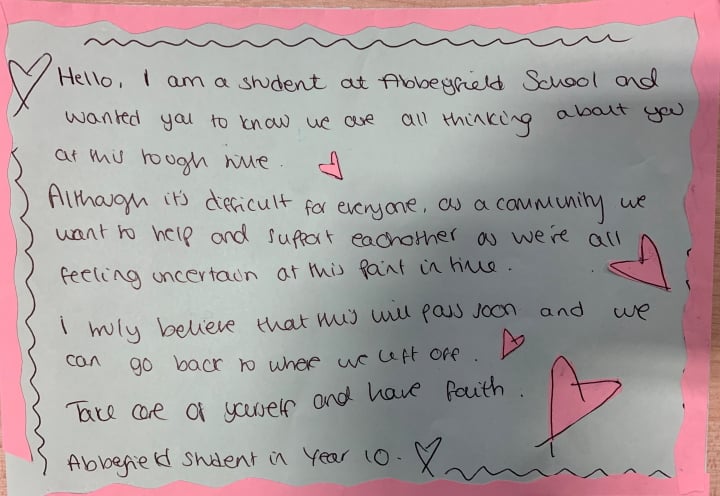 Hello, I am a student at Abbeyfield School and
wanted you to know we are all thinking about you
at this tough time.
Although it's difficult for everyone, as a community we
want to help and support eachother as we're all
feeling uncertain at this point in time.
i truly believe that this will pass soon and we
can go back to where we left off.
Take care of yourself and have faith.
Abbeyfield Student in Year 10.